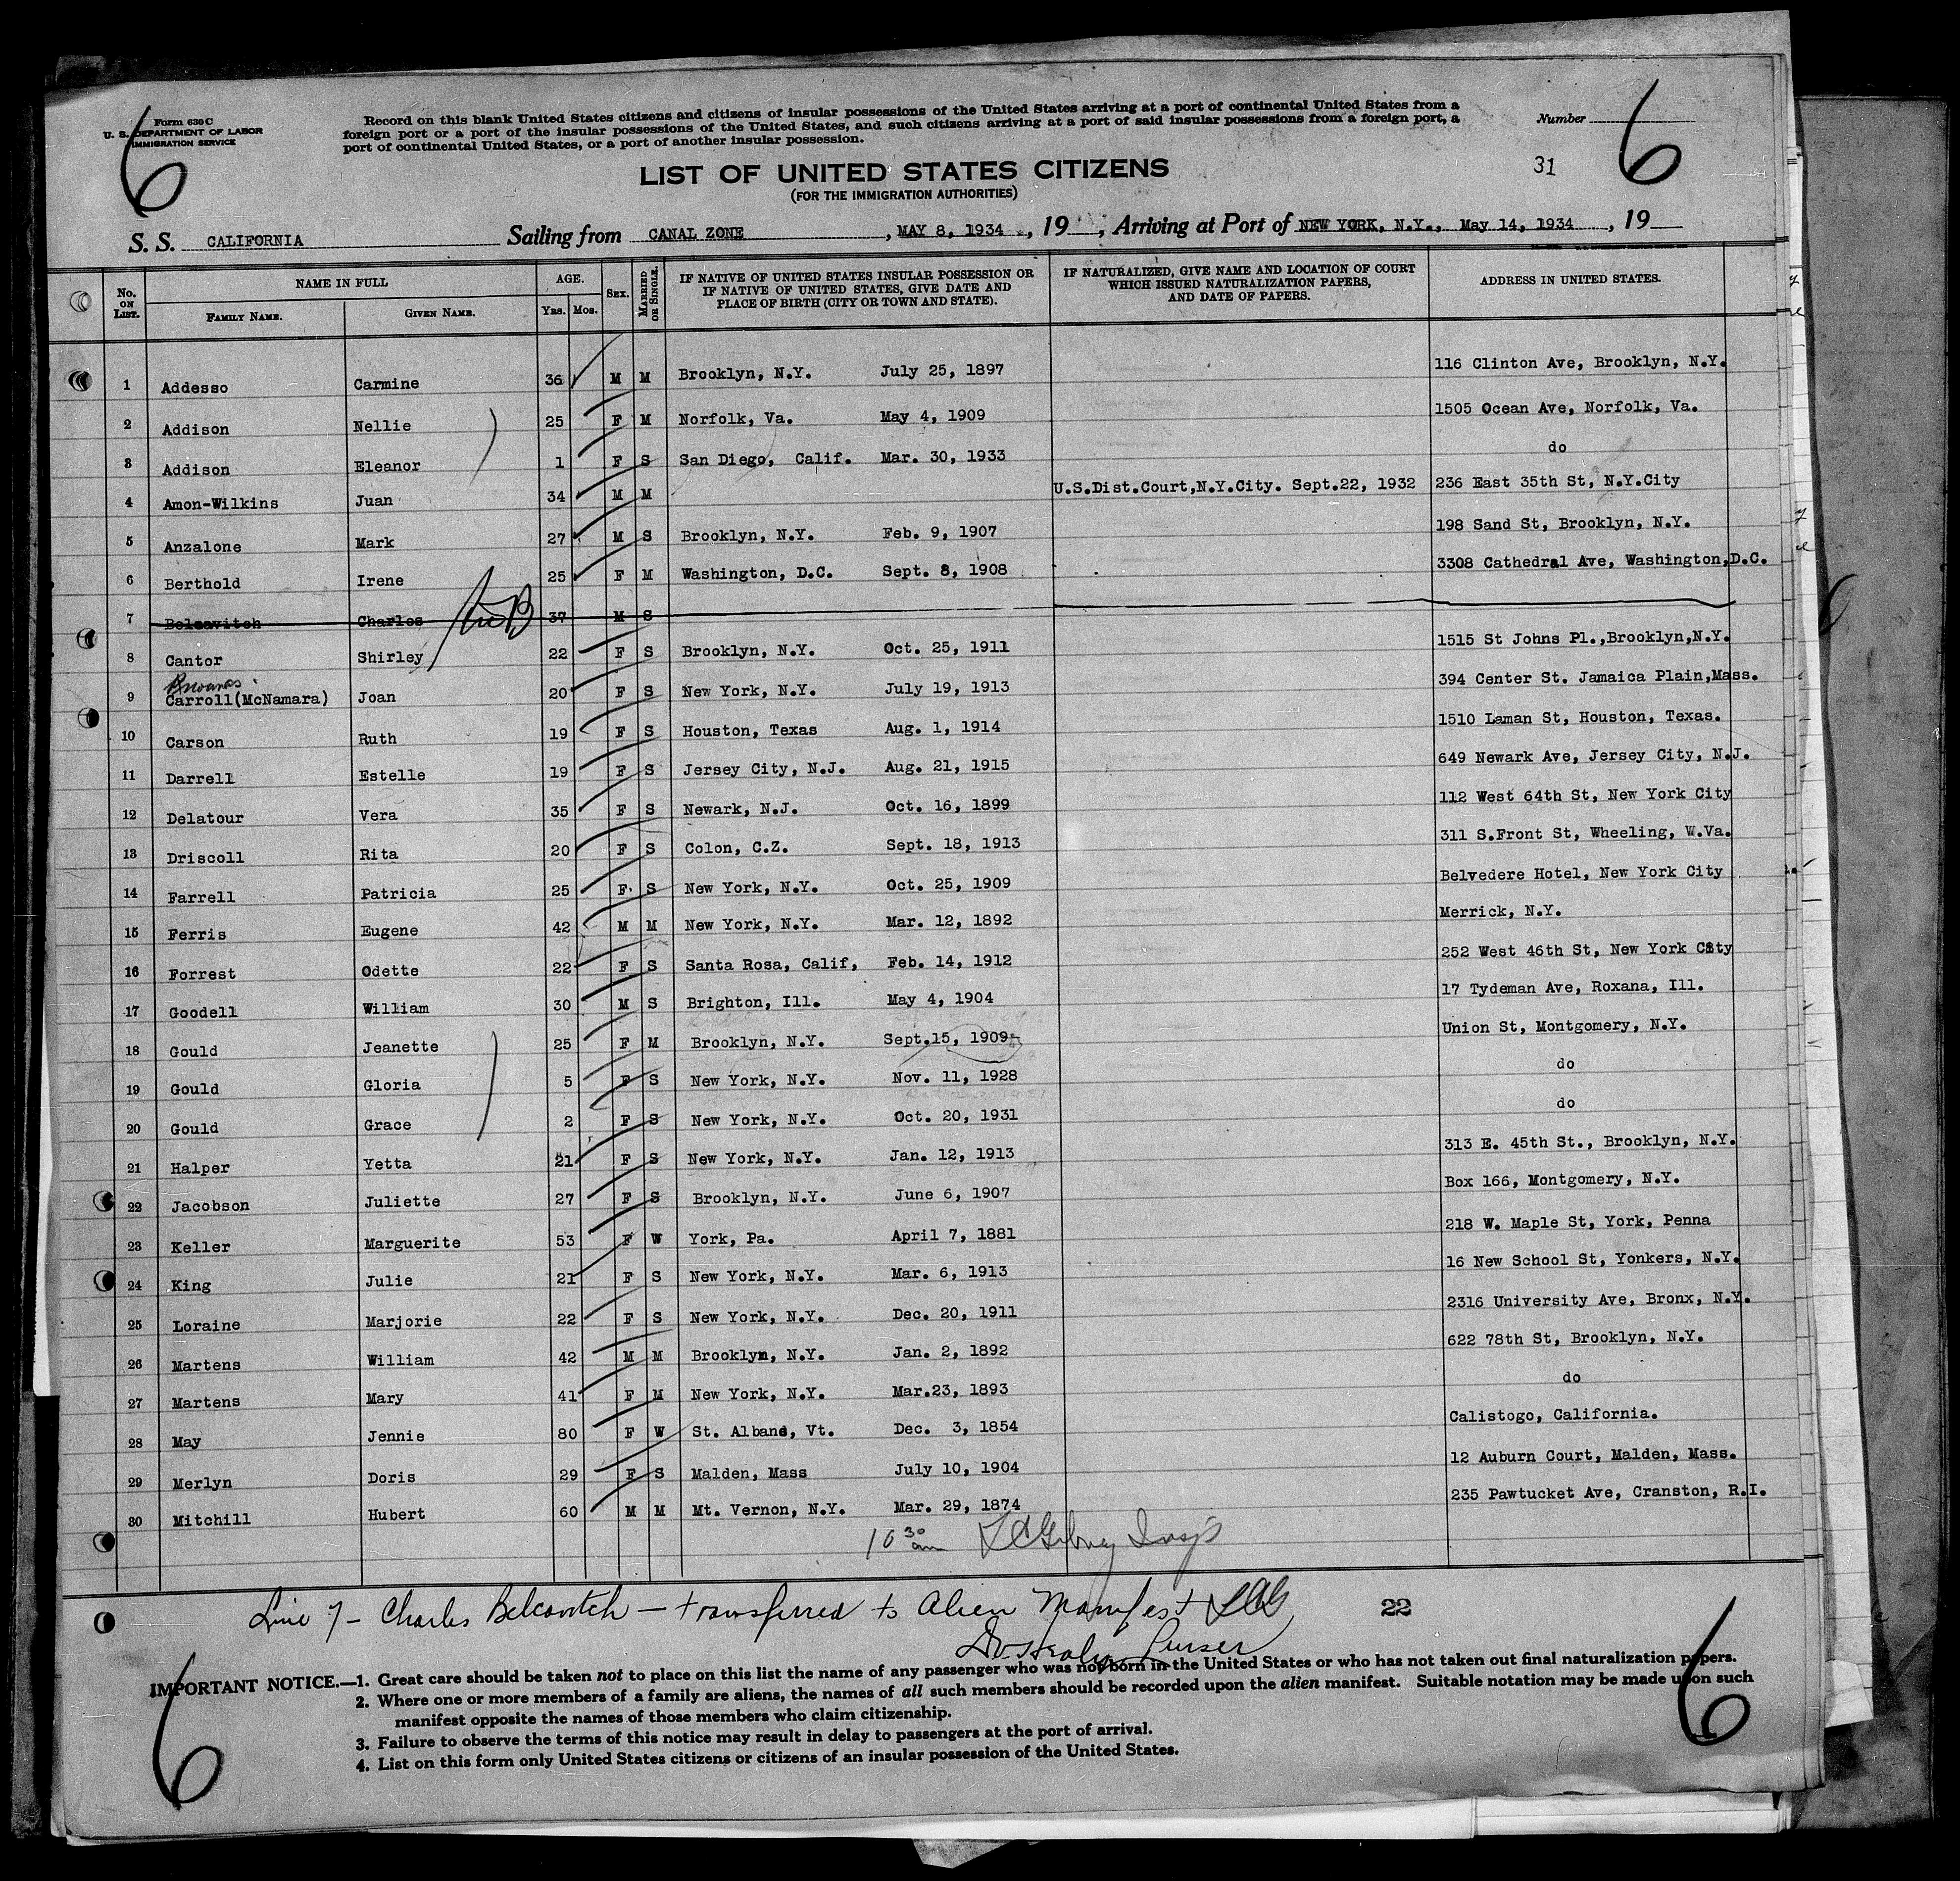 6
Form 630 C
U. S. DEPARTMENT OF LABOR
IMMIGRATION SERVICE
Record on this blank United States citizens and citizens of insular possessions of the United States arriving at a port of continental United States from a
foreign port or a port of the insular possessions of the United States, and such citizens arriving at a port of said insular possessions from a foreign port, a
port of continental United States, or a port of another insular possession.
Number
6
31
LIST OF UNITED STATES CITIZENS
(FOR THE IMMIGRATION AUTHORITIES)
S. S. CALIFORNIA Sailing from CANAL ZONE, MAY 8, 1934, 19 , Arriving at Port of NEW YORK, N.Y., May 14, 1934, 19
No. ON LIST. NAME IN FULL FAMILY NAME. GIVEN NAME. AGE. YRS. MOS. SEX. MARRIED OR SINGLE. IF NATIVE OF UNITED STATES INSULAR POSSESSION OR IF NATIVE OF UNITED STATES, GIVE DATE AND PLACE OF BIRTH (CITY OR TOWN AND STATE). IF NATURALIZED, GIVE NAME AND LOCATION OF COURT WHICH ISSUED NATURALIZATION PAPERS, AND DATE OF PAPERS. ADDRESS IN UNITED STATES.
1 Addesso Carmine 36 M M Brooklyn, N.Y. July 25, 1897 116 Clinton Ave, Brooklyn, N.Y.
2 Addison Nellie 25 F M Norfolk, Va. May 4, 1909 1505 Ocean Ave, Norfolk, Va.
3 Addison Eleanor 1 F S San Diego, Calif. Mar. 30, 1933 do
4 Amon-Wilkins Juan 34 M M U.S.Dist.Court,N.Y.City. Sept.22, 1932 236 East 35th St, N.Y.City
5 Anzalone Mark 27 M S Brooklyn, N.Y. Feb. 9, 1907 198 Sand St, Brooklyn, N.Y.
6 Berthold Irene 25 F M Washington, D.C. Sept. 8, 1908 3308 Cathedral Ave, Washington,D.C.
7 Belcavitch Charles 37 M S
8 Cantor Shirley 22 F S Brooklyn, N.Y. Oct. 25, 1911 1515 St Johns Pl.,Brooklyn,N.Y.
9 Carroll(McNamara) Joan 20 F S New York, N.Y. July 19, 1913 394 Center St. Jamaica Plain,Mass.
10 Carson Ruth 19 F S Houston, Texas Aug. 1, 1914 1510 Laman St, Houston, Texas.
11 Darrell Estelle 19 F S Jersey City, N.J. Aug. 21, 1915 649 Newark Ave, Jersey City, N.J.
12 Delatour Vera 35 F S Newark, N.J. Oct. 16, 1899 112 West 64th St, New York City
13 Driscoll Rita 20 F S Colon, C.Z. Sept. 18, 1913 311 S.Front St, Wheeling, W.Va.
14 Farrell Patricia 25 F. S New York, N.Y. Oct. 25, 1909 Belvedere Hotel, New York City
15 Ferris Eugene 42 M M New York, N.Y. Mar. 12, 1892 Merrick, N.Y.
16 Forrest Odette 22 F S Santa Rosa, Calif, Feb. 14, 1912 252 West 46th St, New York City
17 Goodell William 30 M S Brighton, Ill. May 4, 1904 17 Tydeman Ave, Roxana, Ill.
18 Gould Jeanette 25 F M Brooklyn, N.Y. Sept.15, 1909 Union St, Montgomery, N.Y.
19 Gould Gloria 5 F S New York, N.Y. Nov. 11, 1928 do
20 Gould Grace 2 F S New York, N.Y. Oct. 20, 1931 do
21 Halper Yetta 21 F S New York, N.Y. Jan. 12, 1913 313 E. 45th St., Brooklyn, N.Y.
22 Jacobson Juliette 27 F S Brooklyn, N.Y. June 6, 1907 Box 166, Montgomery, N.Y.
23 Keller Marguerite 53 F W York, Pa. April 7, 1881 218 W. Maple St, York, Penna
24 King Julie 21 F S New York, N.Y. Mar. 6, 1913 16 New School St, Yonkers, N.Y.
25 Loraine Marjorie 22 F S New York, N.Y. Dec. 20, 1911 2316 University Ave, Bronx, N.Y.
26 Martens William 42 M M Brooklyn, N.Y. Jan. 2, 1892 622 78th St, Brooklyn, N.Y.
27 Martens Mary 41 F M New York, N.Y. Mar.23, 1893 do
28 May Jennie 80 F W St. Albans, Vt. Dec. 3, 1854 Calistogo, California.
29 Merlyn Doris 29 F S Malden, Mass July 10, 1904 12 Auburn Court, Malden, Mass.
30 Mitchill Hubert 60 M M Mt. Vernon, N.Y. Mar. 29, 1874 235 Pawtucket Ave, Cranston, R.I.
10 30 am
Line 7 - Charles Belcavitch - transferred to Alien Manifest
22
Purser
IMPORTANT NOTICE.—1. Great care should be taken not to place on this list the name of any passenger who was not born in the United States or who has not taken out final naturalization papers.
2. Where one or more members of a family are aliens, the names of all such members should be recorded upon the alien manifest. Suitable notation may be made upon such
manifest opposite the names of those members who claim citizenship.
3. Failure to observe the terms of this notice may result in delay to passengers at the port of arrival.
4. List on this form only United States citizens or citizens of an insular possession of the United States.
6
6